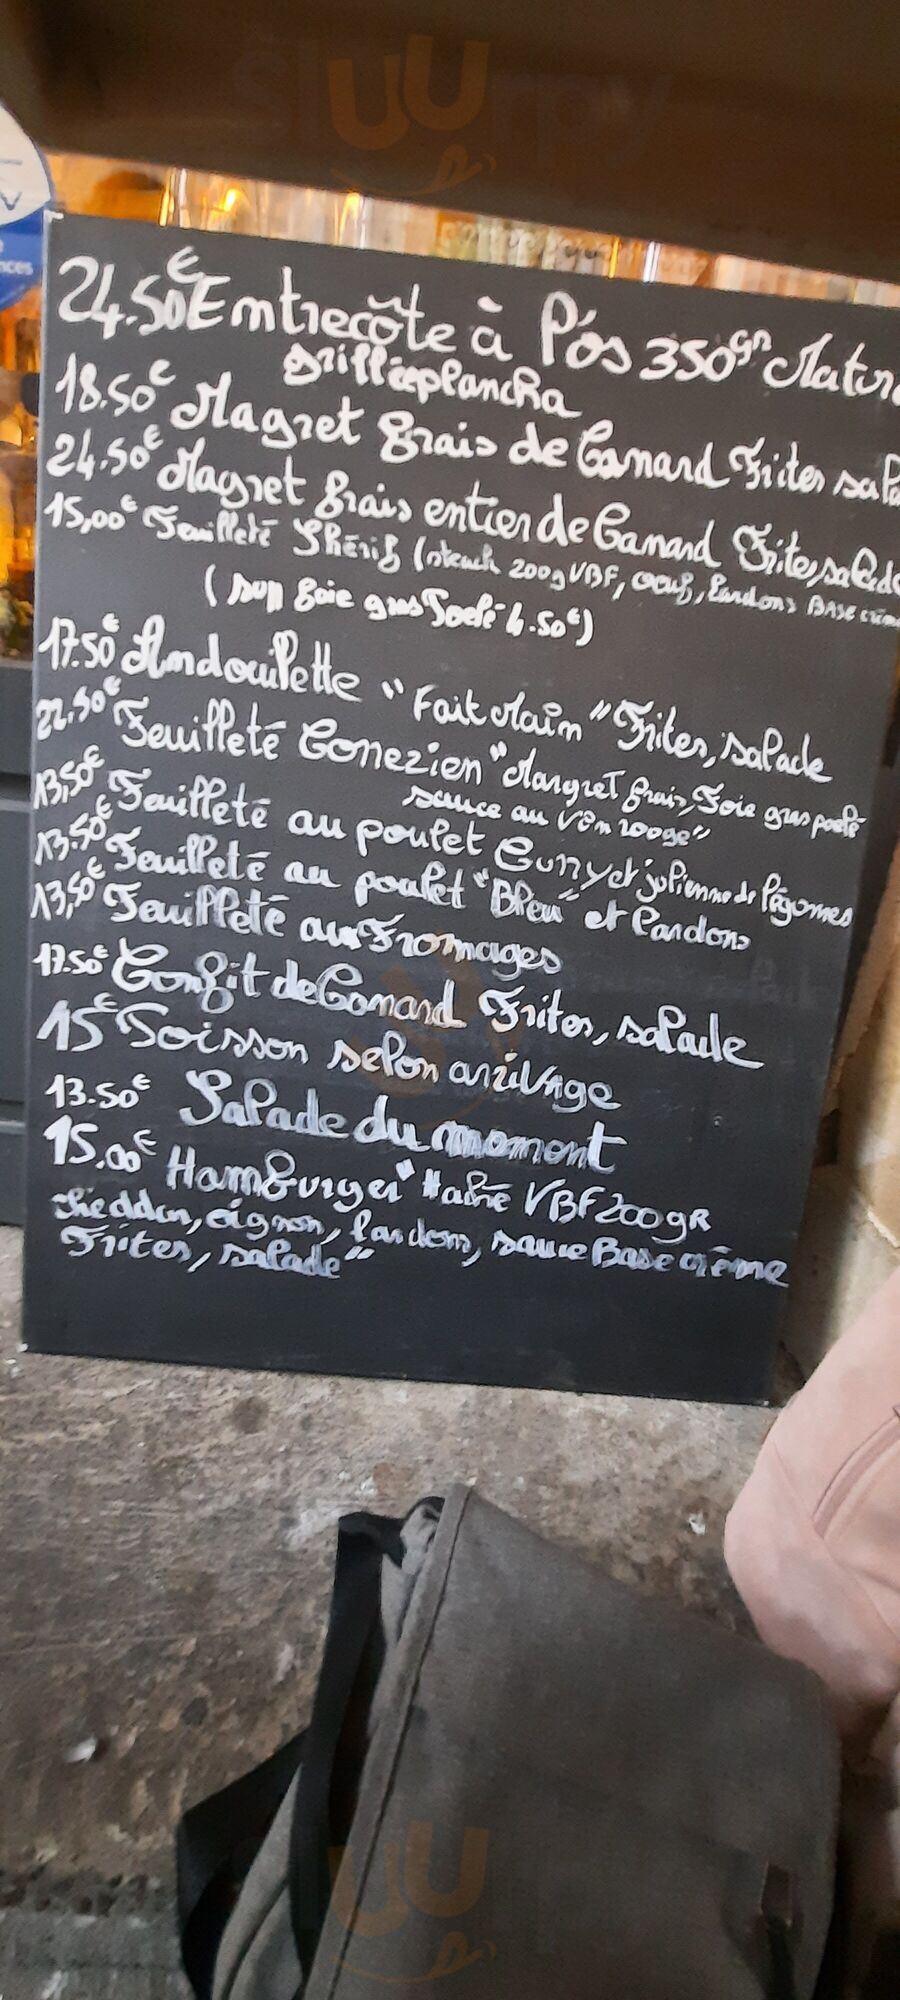 24.50€ Entrecôte à l'os 350gr Natur
grillée plancha
18.50€ Magret frais de Canard Frites sala
24.50€ Magret frais entier de Canard Frites, salade
15,00€ Feuilleté Shérif (steack 200g VBF, oeuf, lardons BASE crème
(sup foie gras Poélé 6.50€)
17.50€ Andouillette "Fait Main" Frites, salade
22.50€ Feuilleté Conezien "Margret frais, Foie gras poélé
sauce au vin rouge"
13,50€ Feuilleté au poulet Curry et julienne de légomes
13.50€ Feuilleté au poulet "Bleu" et lardons
13,50€ Feuilleté aux Fromages
17.50€ Confit de Canard Frites, salade
15€ Poisson selon arrivage
13.50€ Salade du moment
15.00€ Hamburger "Haché VBF 200gR
cheddar, oignon, lardons, sauce Base crème
Frites, salade"